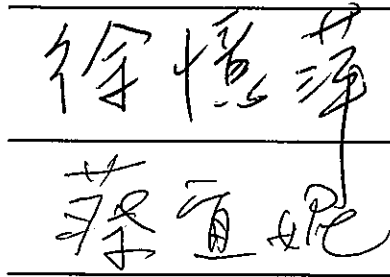 徐憶萍
蔡宜妮